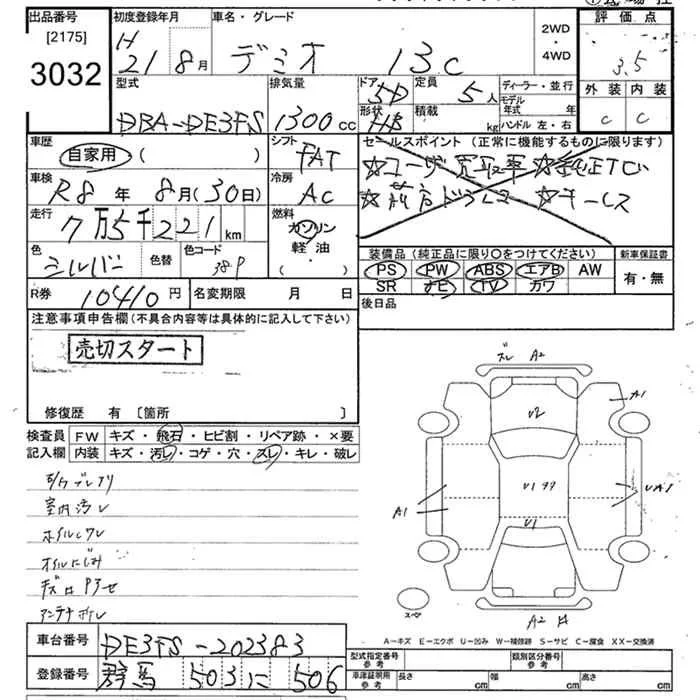 出品番号 初度登録年月 車名・グレード 2WD 評価点
[2175] H 21 8月 デミオ 13C ・ 4WD 3.5
3032
型式 排気量 ドア 5D 定員 5人 ディーラー・並行 外装 内装
DBA-DE3FS 1300cc 形状 HB 積載 kg モデル年式 年 C C
ハンドル 左・右
車歴 シフト セールスポイント (正常に機能するものに限ります)
自家用 ( ) FAT
☆ユーザー買取車 ☆純正TV
車検 冷房
R8年 8月(30日) AC ☆ ☆キーレス
走行 燃料
7万5千221km ガソリン
軽油
( ・ )
色 色替 色コード 装備品 (純正品に限り○をつけてください) 新車保証書
シルバー 38P PS PW ABS エアB AW 有・無
SR ナビ TV カワ
R券 10410円 名変期限 月 日 後日品
注意事項申告欄 (不具合内容等は具体的に記入して下さい)
売切スタート
ズレ A2
A1
U2
修復歴 有 [箇所 ]
検査員 FW キズ・飛石・ヒビ割・リペア跡・×要
記入欄 内装 キズ・汚レ・コゲ・穴・スレ・キレ・破レ
室内汚レ
A1 U1
U1
オイルにじみ
アンテナ
スペア
A2
車台番号 DE3FS-202383 A-キズ E-エクボ U-凹み W-補修跡 S-サビ C-腐食 XX-交換済
登録番号 群馬 503 に 506 型式指定番号 参考 類別区分番号 参考
車庫証明用 参考 長さ cm 幅 cm 高さ cm